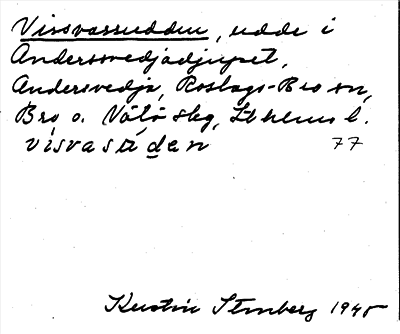 Vissvassudden, udde i
Andersvedjadjupet,
Andersvedja, Roslags-Bro sn,
Bro o. Vätö skg, Sthlms l.
visvasúdan 77
Kerstin Stenberg 1945